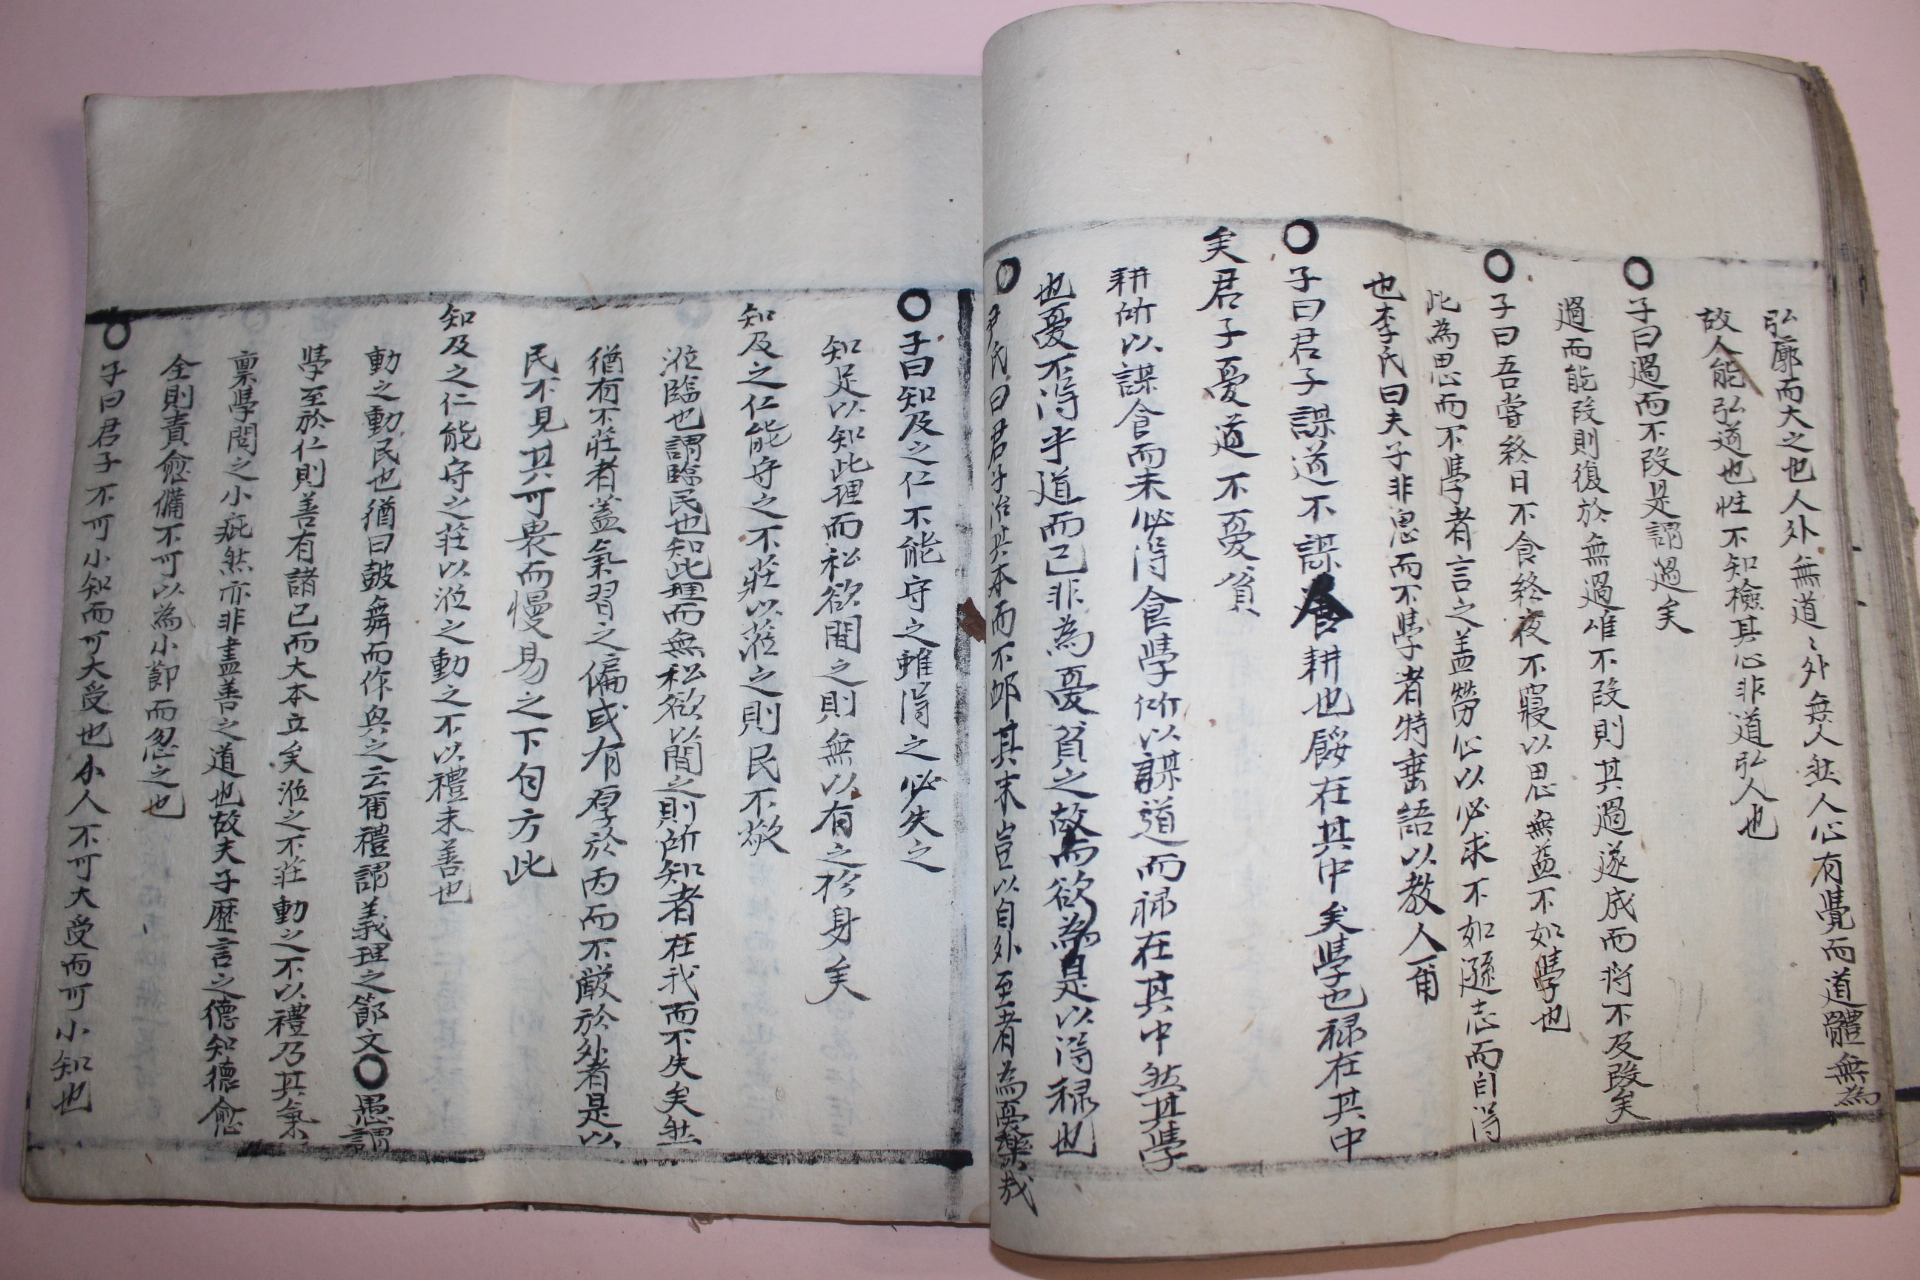 弘廓而大之也人外無道〻外無人然人心有覺而道體無為
故人能弘道也性不知檢其心非道弘人也
○子曰過而不改是謂過矣
過而能改則復於無過唯不改則其過遂成而將不及改矣
○子曰吾嘗終日不食終夜不寢以思無益不如學也
此為思而不學者言之盖勞心以必求不如遜志而自得
也李氏曰夫子非思而不學者特垂語以教人甭
○子曰君子謀道不謀食耕也餒在其中矣學也祿在其中
矣君子憂道不憂貧
耕所以謀食而未必得食學所以謀道而祿在其中然其學
也憂不得乎道而已非為憂貧之故而欲為是以得祿也
○尹氏曰君子治其本而不卹其末豈以自外至者為憂樂哉
○子曰知及之仁不能守之雖得之必失之
知足以知此理而私欲間之則無以有之於身矣
知及之仁能守之不莊以莅之則民不敬
涖臨也謂臨民也知此理而無私欲以間之則所知者在我而不失矣然
猶有不莊者盖氣習之偏或有厚於內而不嚴於外者是以
民不見其可畏而慢易之下句方此
知及之仁能守之莊以涖之動之不以禮未善也
動之動民也猶曰皷舞而作興之云甭禮謂義理之節文○愚謂
學至於仁則善有諸己而大本立矣涖之不莊動之不以禮乃其氣
禀學問之小疵然亦非盡善之道也故夫子歷言之德知德愈
全則責愈備不可以為小節而忽之也
○子曰君子不可小知而可大受也小人不可大受而可小知也